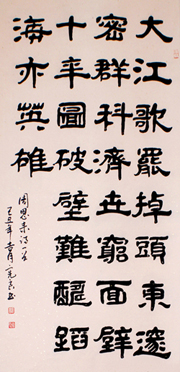 大江歌罷掉頭東邃
密群科濟世窮面壁
十年圖破壁難醻蹈
海亦英雄
周恩来诗一首
己丑年 书